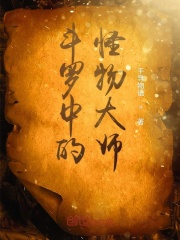 斗罗中的
怪物大师